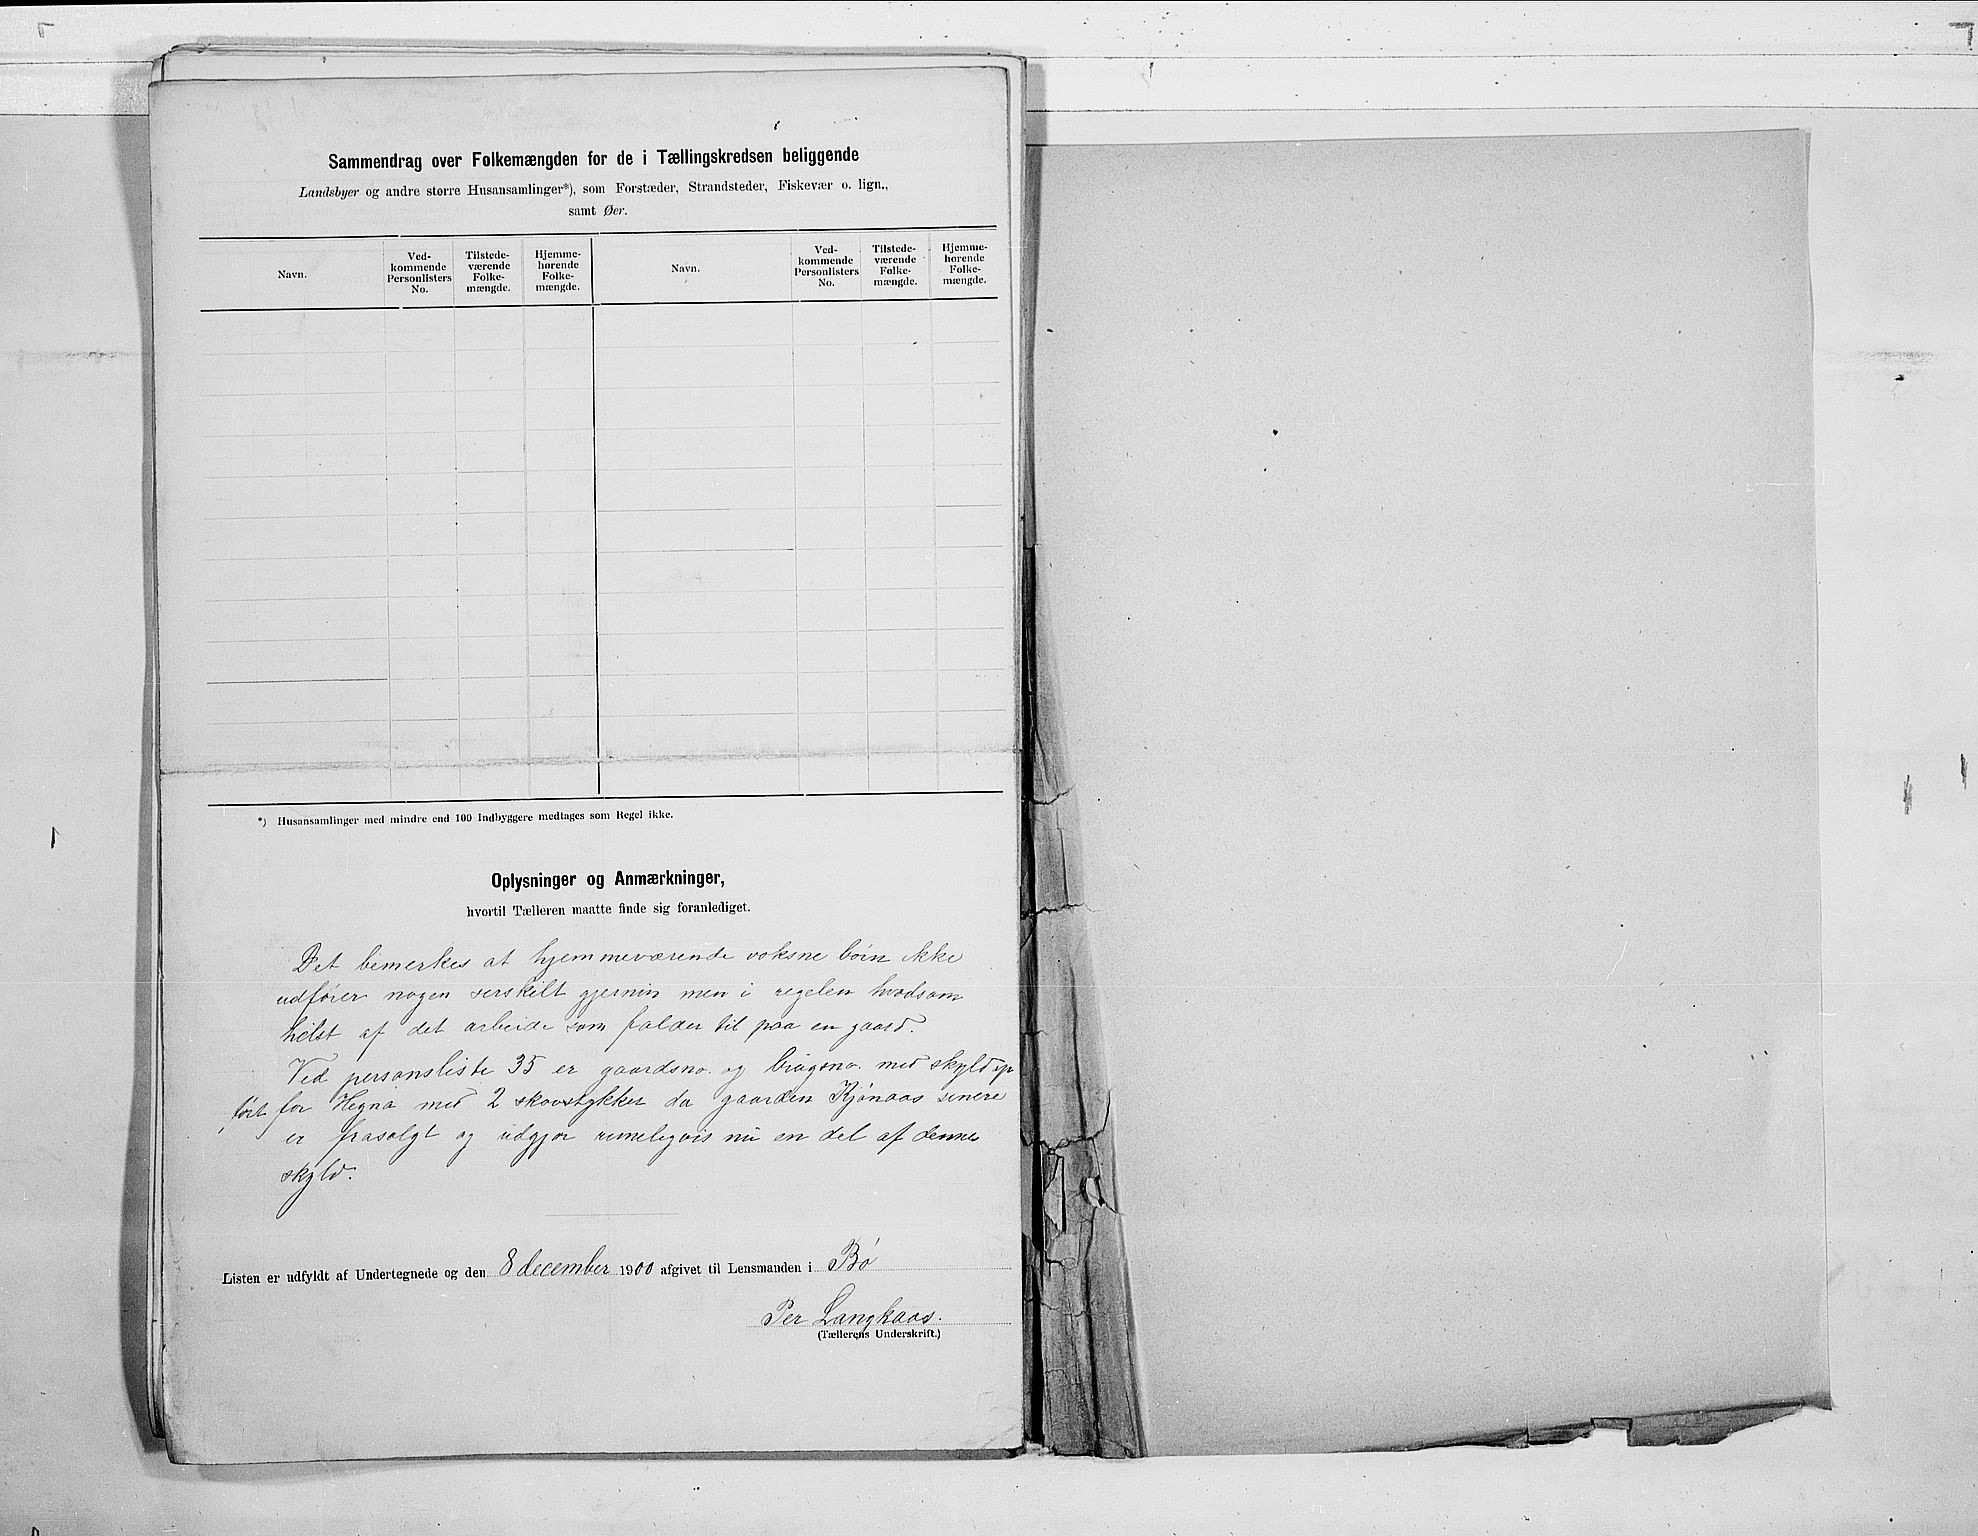 Sammendrag over Folkemængden for de i Tællingskredsen beliggende
Landsbyer og andre større Husansamlinger*), som Forstæder, Strandsteder, Fiskevær o. lign.,
samt Øer.
Navn.
Ved-
kommende
Personlisters
No.
Tilstede-
værende
Folke-
mængde.
Hjemme-
hørende
Folke-
mængde.
Navn.
Ved-
kommende
Personlisters
No.
Tilstede-
værende
Folke-
mængde.
Hjemme-
hørende
Folke-
mængde.
*) Husansamlinger med mindre end 100 Indbyggere medtages som Regel ikke.
Oplysninger og Anmærkninger,
hvortil Tælleren maatte finde sig foranlediget.
Det bemerkes at hjemmeværende voksne børn ikke
udfører nogen serskilt gjernin men i regelen hvadsom
helst af det arbeide som falder til paa en gaard.
Ved personsliste 35 er gaardsno. og brugsno. med skyld op
ført for Hegna med 2 skovstykker da gaarden Kjønaas senere
er frasolgt og udgjør rimeligvis nu en del af denne
skyld.
Listen er udfyldt af Undertegnede og den 8 december 1900 afgivet til Lensmanden i Bø
Per Langkaas.
(Tællerens Underskrift.)